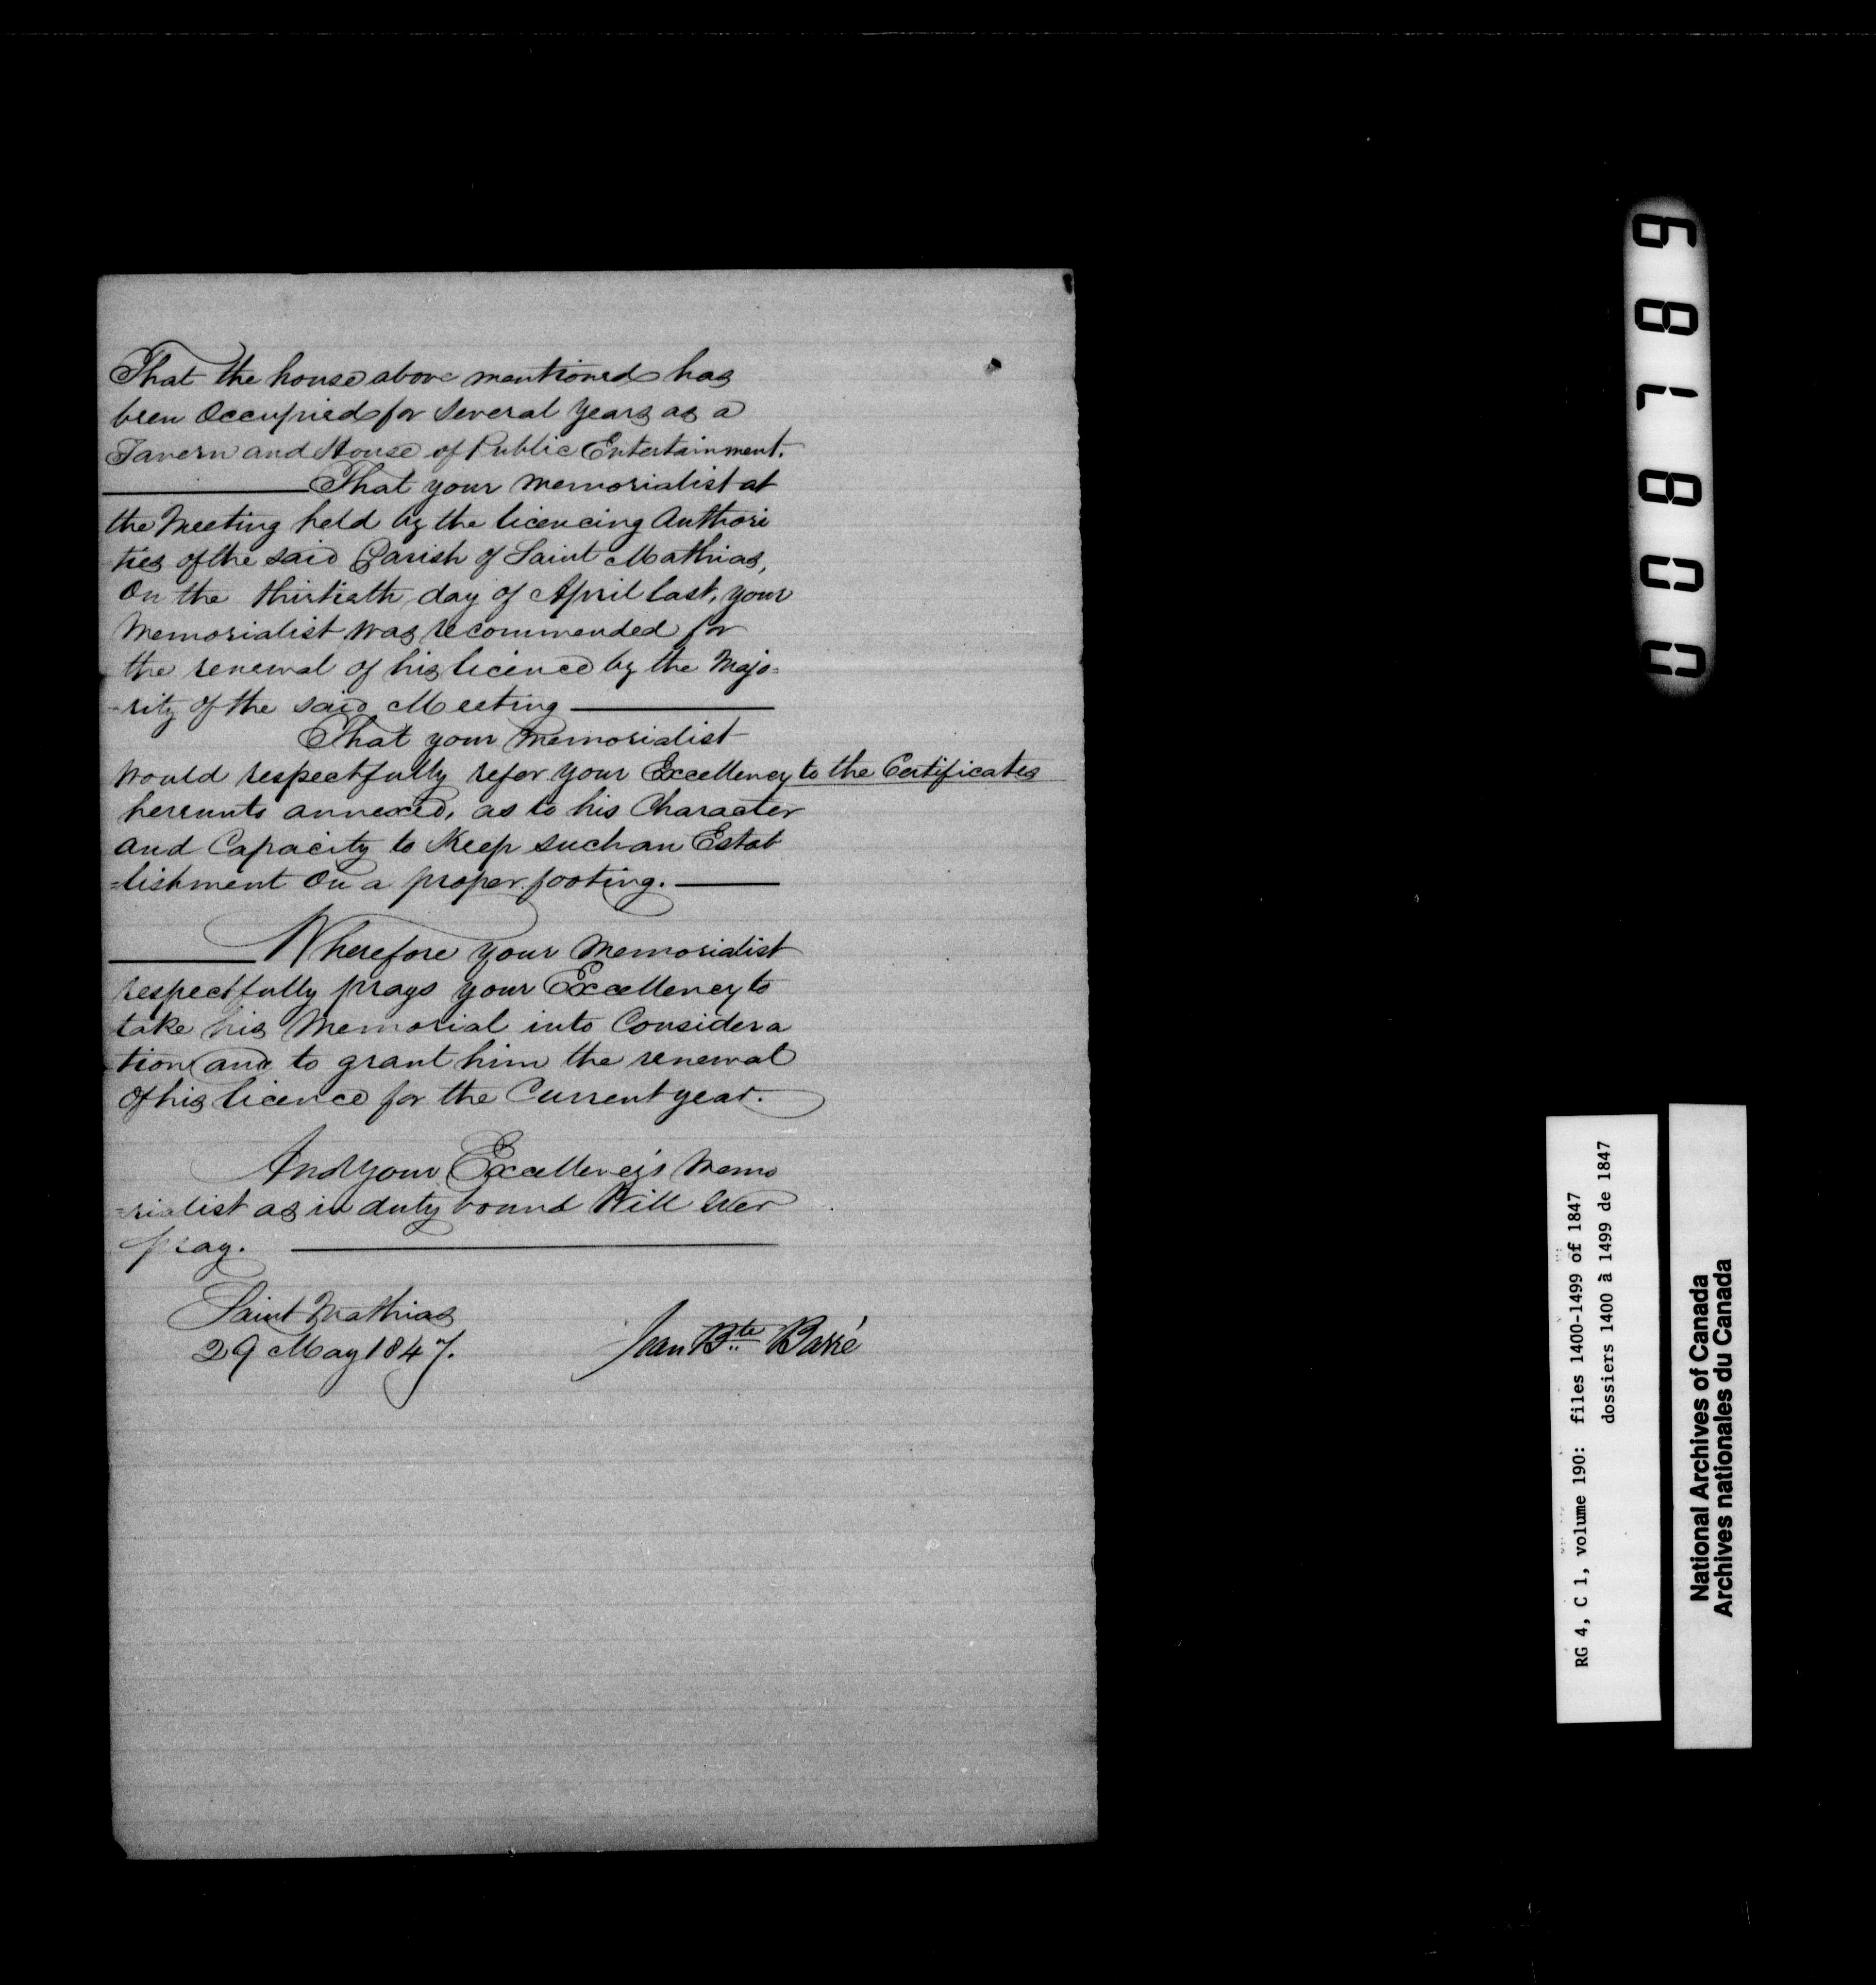 That the house above mentioned has
been Occupied for Several Years as a
Tavern and House of Public Entertainment.
That your memorialist at
the Meeting held by the licencing Authori
ties of the said Parish of Saint Mathias,
On the thirtieth day of April last, your
Memorialist was recommended for
the renewal of his licence by the Majo=
-rity of the said Meeting
That your Memorialist
Would respectfully refer your Excellency to the Certificates
hereunto annexed, as to his Character
and Capacity to Keep such an Estab
=lishment On a proper footing.
Wherefore your Memorialist
respectfully prays your Excellency to
take his Memorial into Considera
tion and to grant him the renewal
Of his licence for the Current year.
And Your Excellency's Memo
=rialist as in duty bound Will Ever
pray.
Saint Mathias
29 May 1847.
Jean Bte Barré
008789
RG 4, C 1, volume 190: files 1400-1499 of 1847
dossiers 1400 à 1499 de 1847
National Archives of Canada
Archives nationales du Canada